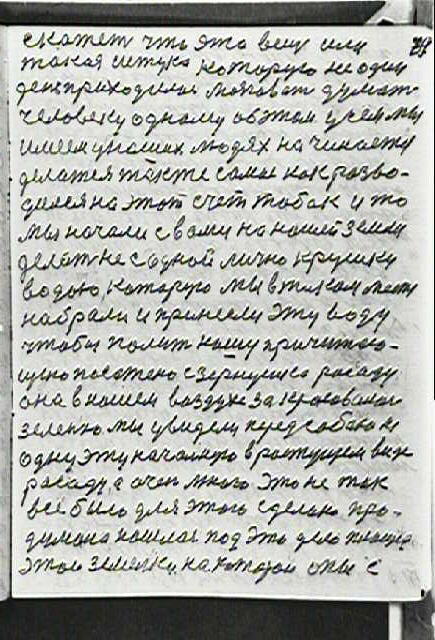 скажет что это вещ или 29
такая штука которую не один
ден приходилос мозговат думат
человеку одному об этом у чем мы
имеем у наших людях начинает
делатся так те самы как разво-
дился на этот счет табак и то
мы начали с вами на нашей земли
делат не с одной лично кружки
водою, которую мы в таком месте
набрали и принесли эту воду
чтобы полит нашу причитаю-
щую посажено с зернушка расаду
она в нашем воздухе закрасовалас
зеленю мы увидели перед собою не
одну эту начатую в растущем виде
расаду, а очен много это не так
все было для этого сделано про-
думана нашлас под это дело
этой земельки, на которой опы с